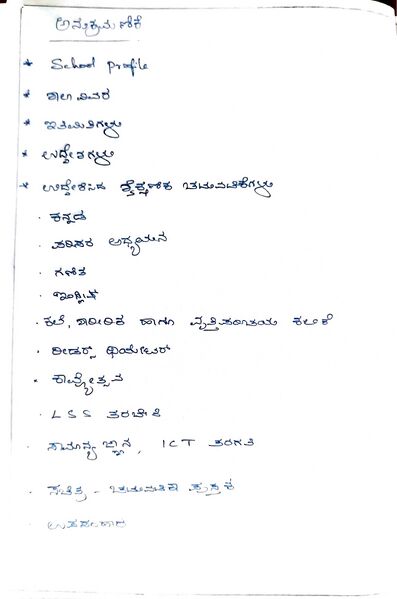 ಅನುಕ್ರಮಣಿಕೆ
* School Profile
* ಶಾಲಾ ವಿವರ
* ಇತಿಮಿತಿಗಳು
* ಉದ್ದೇಶಗಳು
* ಉದ್ದೇಶಿಸಿದ ಶೈಕ್ಷಣಿಕ ಚಟುವಟಿಕೆಗಳು
· ಕನ್ನಡ
· ಪರಿಸರ ಅಧ್ಯಯನ
· ಗಣಿತ
· ಇಂಗ್ಲಿಷ್
· ಕಲೆ, ಶಾರೀರಿಕ ಹಾಗೂ ವೃತ್ತಿಪರಿಚಯ ಕಲಿಕೆ
· ರೀಡರ್ಸ್ ಥಿಯೇಟರ್
· ಕಾವ್ಯೋತ್ಸವ
· LSS ತರಬೇತಿ
· ಸಾಮಾನ್ಯ ಜ್ಞಾನ, ICT ತರಗತಿ
· ಸಚಿತ್ರ - ಚಟುವಟಿಕಾ ಪುಸ್ತಕ
· ಉಪಸಂಹಾರ